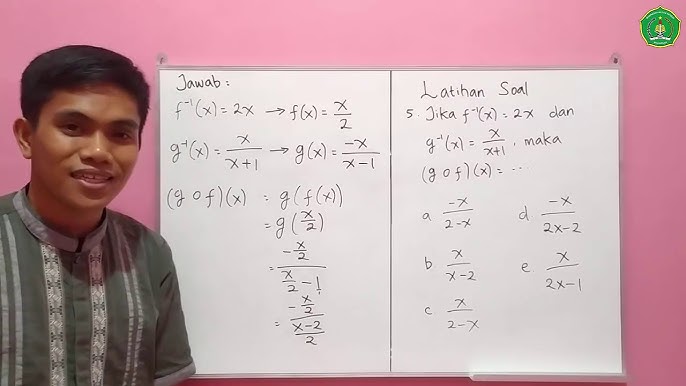 Jawab:
f⁻¹(x) = 2x → f(x) = x/2
g⁻¹(x) = x/(x+1) → g(x) = -x/(x-1)
(g o f)(x) = g(f(x))
= g(x/2)
= (-x/2)/(x/2 - 1)
= (-x/2)/((x-2)/2)
Latihan Soal
5. Jika f⁻¹(x) = 2x dan
g⁻¹(x) = x/(x+1), maka
(g o f)(x) = ...
a. -x/(2-x)
b. x/(x-2)
c. x/(2-x)
d. -x/(2x-2)
e. x/(2x-1)